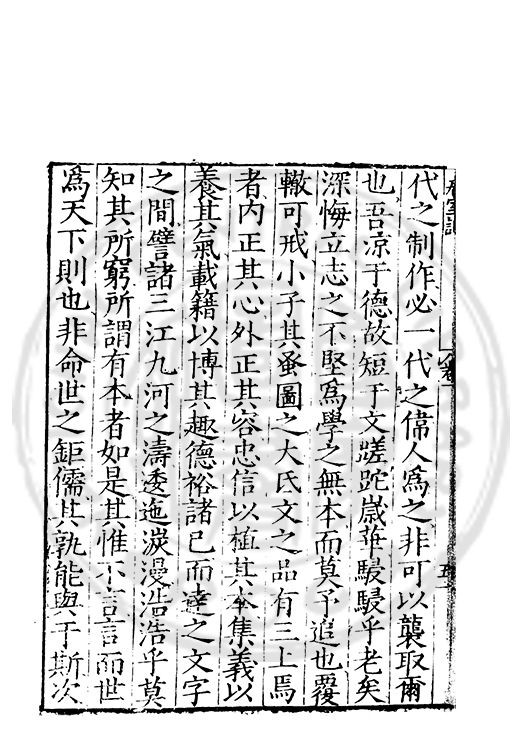 代之制作必一代之偉人爲之非可以襲取爾
也吾凉于德故短于文蹉跎歲華駸駸乎老矣
深悔立志之不堅爲學之無本而莫予追也覆
轍可戒小子其蚤圖之大氐文之品有三上焉
者內正其心外正其容忠信以植其本集義以
養其氣載籍以博其趣德裕諸已而達之文字
之間譬諸三江九河之濤逶迤漫浩浩乎莫
知其所窮所謂有本者如是其惟不言言而世
爲天下則也非命世之鉅儒其孰能與于斯次